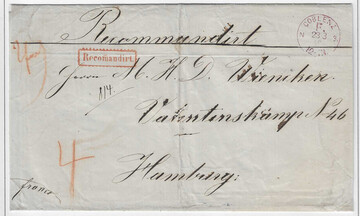 Recommandirt
COBLENZ
23 3
Recomandirt
Herrn H. H. D. Wieniken
114.
Valentinskamp No 46
4
Hamburg.
franco